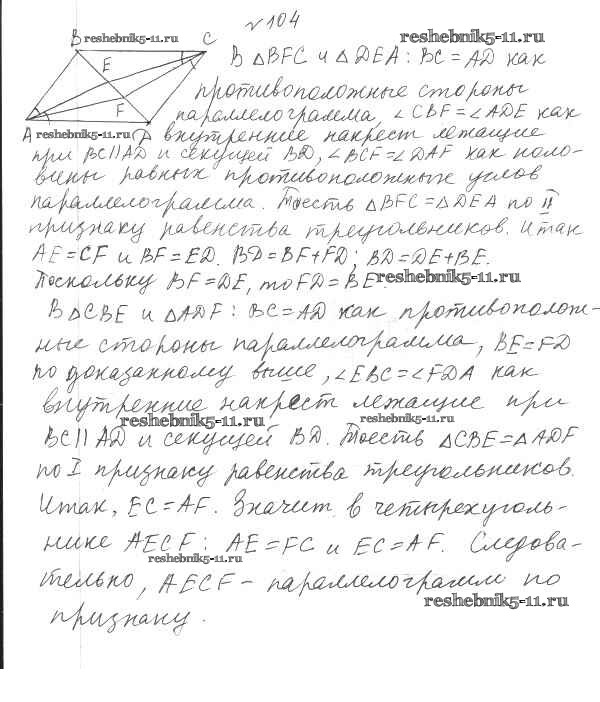 №104
reshebnik5-11.ru
B reshebnik5-11.ru C
E
F
A reshebnik5-11.ru D
В △BFC и △DEA: BC = AD как
противоположные стороны
параллелограмма, ∠CBF = ∠ADE как
внутренние накрест лежащие
при BC || AD и секущей BD, ∠BCF = ∠DAF как поло-
вины равных противоположных углов
параллелограмма. Тоесть △BFC = △DEA по II
признаку равенства треугольников. Итак
AE = CF и BF = ED. BD = BF + FD; BD = DE + BE.
Поскольку BF = DE, то FD = BE. reshebnik5-11.ru
В △CBE и △ADF: BC = AD как противополож-
ные стороны параллелограмма, BE = FD
по доказанному выше, ∠EBC = ∠FDA как
внутренние накрест лежащие при
reshebnik5-11.ru reshebnik5-11.ru
BC || AD и секущей BD. Тоесть △CBE = △ADF
по I признаку равенства треугольников.
Итак, EC = AF. Значит в четырехуголь-
нике AECF: AE = FC и EC = AF. Следова-
reshebnik5-11.ru
тельно, AECF – параллелограмм по
reshebnik5-11.ru
признаку.